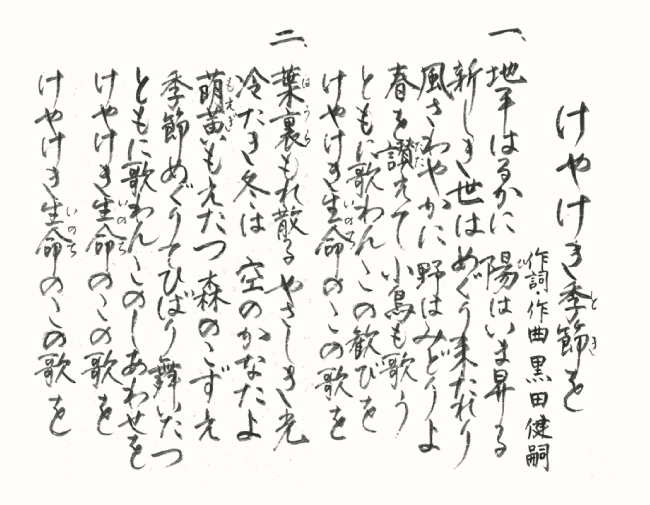 けやけき季節を
作詞・作曲 黒田健嗣
一、地平はるかに 陽はいま昇る
新しき世は めぐり来たれり
風さわやかに 野はみどりよ
春を讃えて 小鳥も歌う
ともに歌わんこの歓びを
けやけき生命のこの歌を
二、葉裏もれ散る やさしき光
冷たき冬は 空のかなたよ
萌黄いもえたつ 森のこずえ
季節めぐりてひばり舞いたつ
ともに歌わんこのしあわせを
けやけき生命のこの歌を
けやけき生命のこの歌を